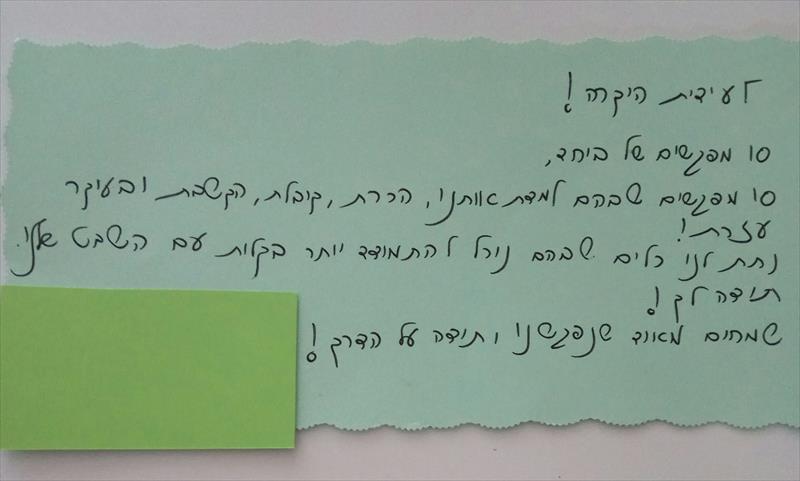 לעידית היקרה!
10 מפגשים של ביחד,
10 מפגשים שבהם למדת אותנו, הכרת, קיבלת, הקשבת ובעיקר
עזרת!
נתת לנו כלים שבהם נוכל להתמודד יותר בקלות עם השבט שלנו.
תודה לך!
שמחים מאוד שנפגשנו ותודה על הדרך!